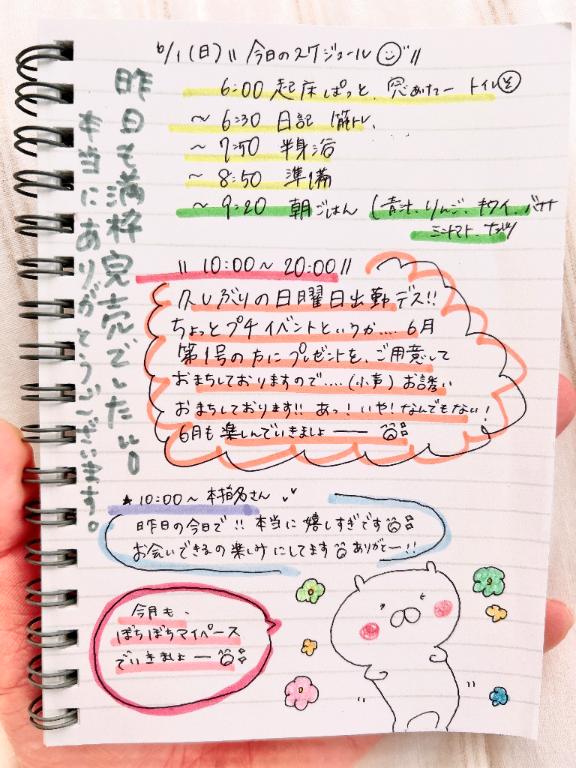 6/1(日) 〃今日のスケジュール〃
6:00 起床ぱっと、窓あけたー トイレ
〜 6:30 日記 筋トレ、
〜 7:50 半身浴
〜 8:50 準備
〜 9:20 朝ごはん (青汁、りんご、キウイ、バナナ
ミニトマト、ナッツ
昨日も満枠完売でした!!
本当にありがとうございます。
〃10:00〜20:00〃
久しぶりの日曜日出勤デス!!
ちょっとプチイベントというか.... 6月
第1号の方にプレゼントを、ご用意して
おまちしておりますので....(小声)お誘い
おまちしております!! あっ!いや!なんでもない!
6月も楽しんでいきましょーー
★10:00〜本指名さん
昨日の今日で!!本当に嬉しすぎです
お会いできるの楽しみにしてます ありがとー!!
今月も、
ぼちぼちマイペース
でいきましょー